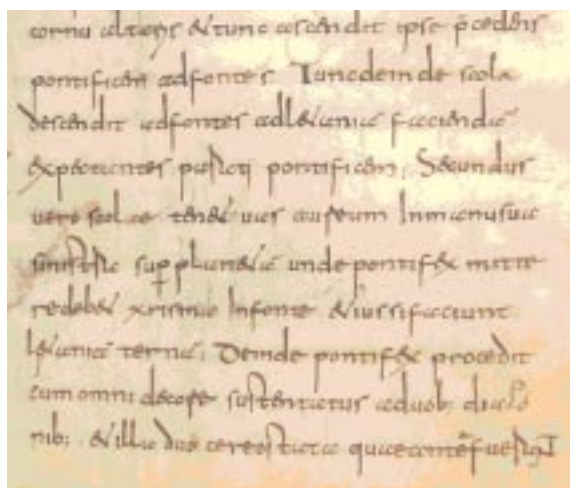 cornu altaris & tunc ascendit ipse p̄cedens
pontificem ad fontes Tunc deinde scola
descendit ad fontes ad l&ania facienda
expectantes pontificem. Secundus
vero scolae ten& vas aureum In manu sua
sinistra unde pontifex mitte
re deb& xrisma In fonte & ipsi faciunt
l&ania terna; Deinde pontifex procedit
cum omni decore sustentatus a duob; diaco
nib; & illa duo cereostata quae